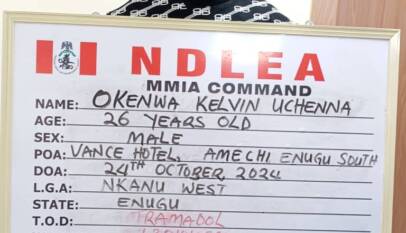 NDLEA
MMIA COMMAND
NAME: OKENWA KELVIN UCHENNA
AGE: 26 YEARS OLD
SEX: MALE
POA: VANCE HOTEL, AMECHI ENUGU SOUTH
DOA: 24TH OCTOBER, 2024
L.G.A: NKANU WEST
STATE: ENUGU
T.O.D: TRAMADOL